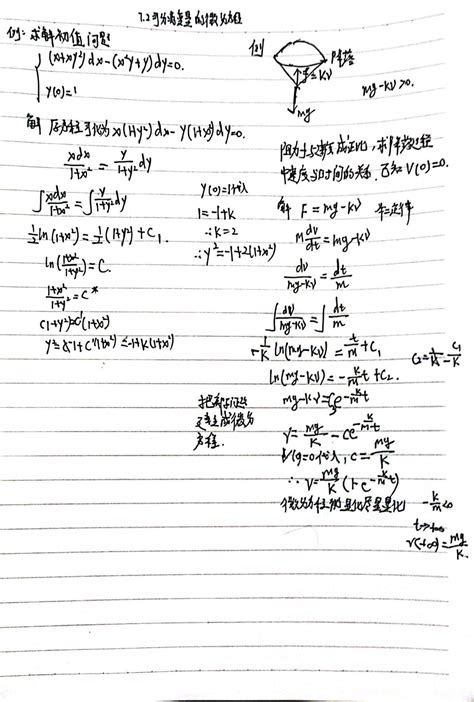 7.2 可分离变量的微分方程
例: 求解初值问题
{ (x+xy²)dx-(x²y+y)dy=0.
y(0)=1
解 原方程可化为 x(1+y²)dx-y(1+x²)dy=0.
xdx/1+x² = y/1+y² dy
∫xdx/1+x² = ∫y/1+y² dy
½ln(1+x²)=½(1+y²)+C₁
ln(1+x²/1+y²)=C.
1+x²/1+y²=C*
C(1+y²)=C'(1+x²)
y²=-1+C'(1+x²)=-1+k(1+x²)
y(0)=1代入
1=-1+k
∴k=2
∴y²=-1+2(1+x²)
例
f=kv
mg
mg-kv>0.
阻力与速度成正比, 求降落过程
中速度与时间的关系. 已知 v(0)=0.
解 F=mg-kv 牛二定律
m dv/dt=mg-kv
dv/mg-kv = dt/m
∫dv/mg-kv = ∫dt/m
-1/k ln(mg-kv)=t/m+C₁
ln(mg-kv)=-k/m t+C₂.
mg-kv=C₃e^(-k/m t)
v=mg/k-Ce^(-k/m t)
v(0)=0代入, C=mg/k
∴v=mg/k(1-e^(-k/m t))
-k/m<0
t→+∞
v(+∞)=mg/k.